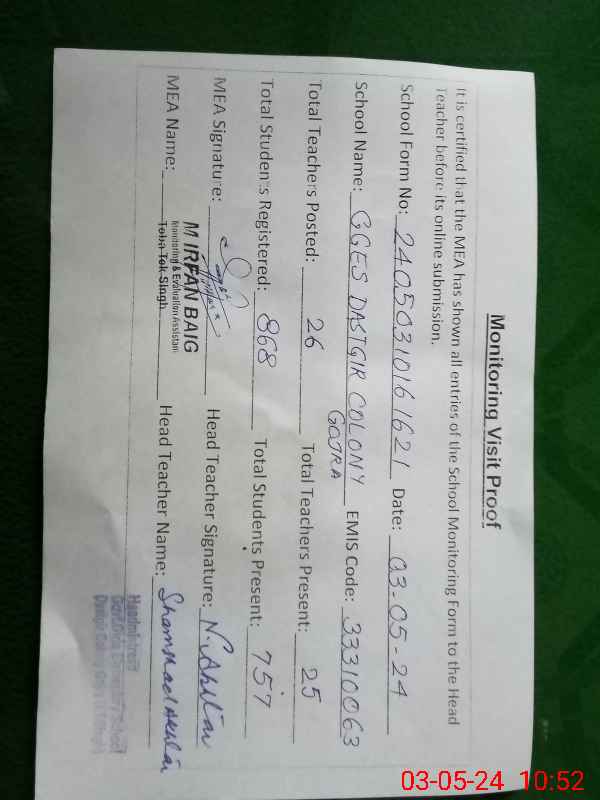 Monitoring Visit Proof
It is certified that the MEA has shown all entries of the School Monitoring Form to the Head
Teacher before its online submission.
School Form No: 2405031016 1621 Date: 03-05-24
School Name: GGES DASTGIR COLONY GOJRA EMIS Code: 33310063
Total Teachers Posted: 26 Total Teachers Present: 25
Total Students Registered: 868 Total Students Present: 757
MEA Signature: Head Teacher Signature: N. Akhtar
MEA Name: M IRFAN BAIG Head Teacher Name: Shamshad Akhtar
Monitoring & Evaluation Assistant
Toba Tek Singh
Headmistress
03-05-24 10:52